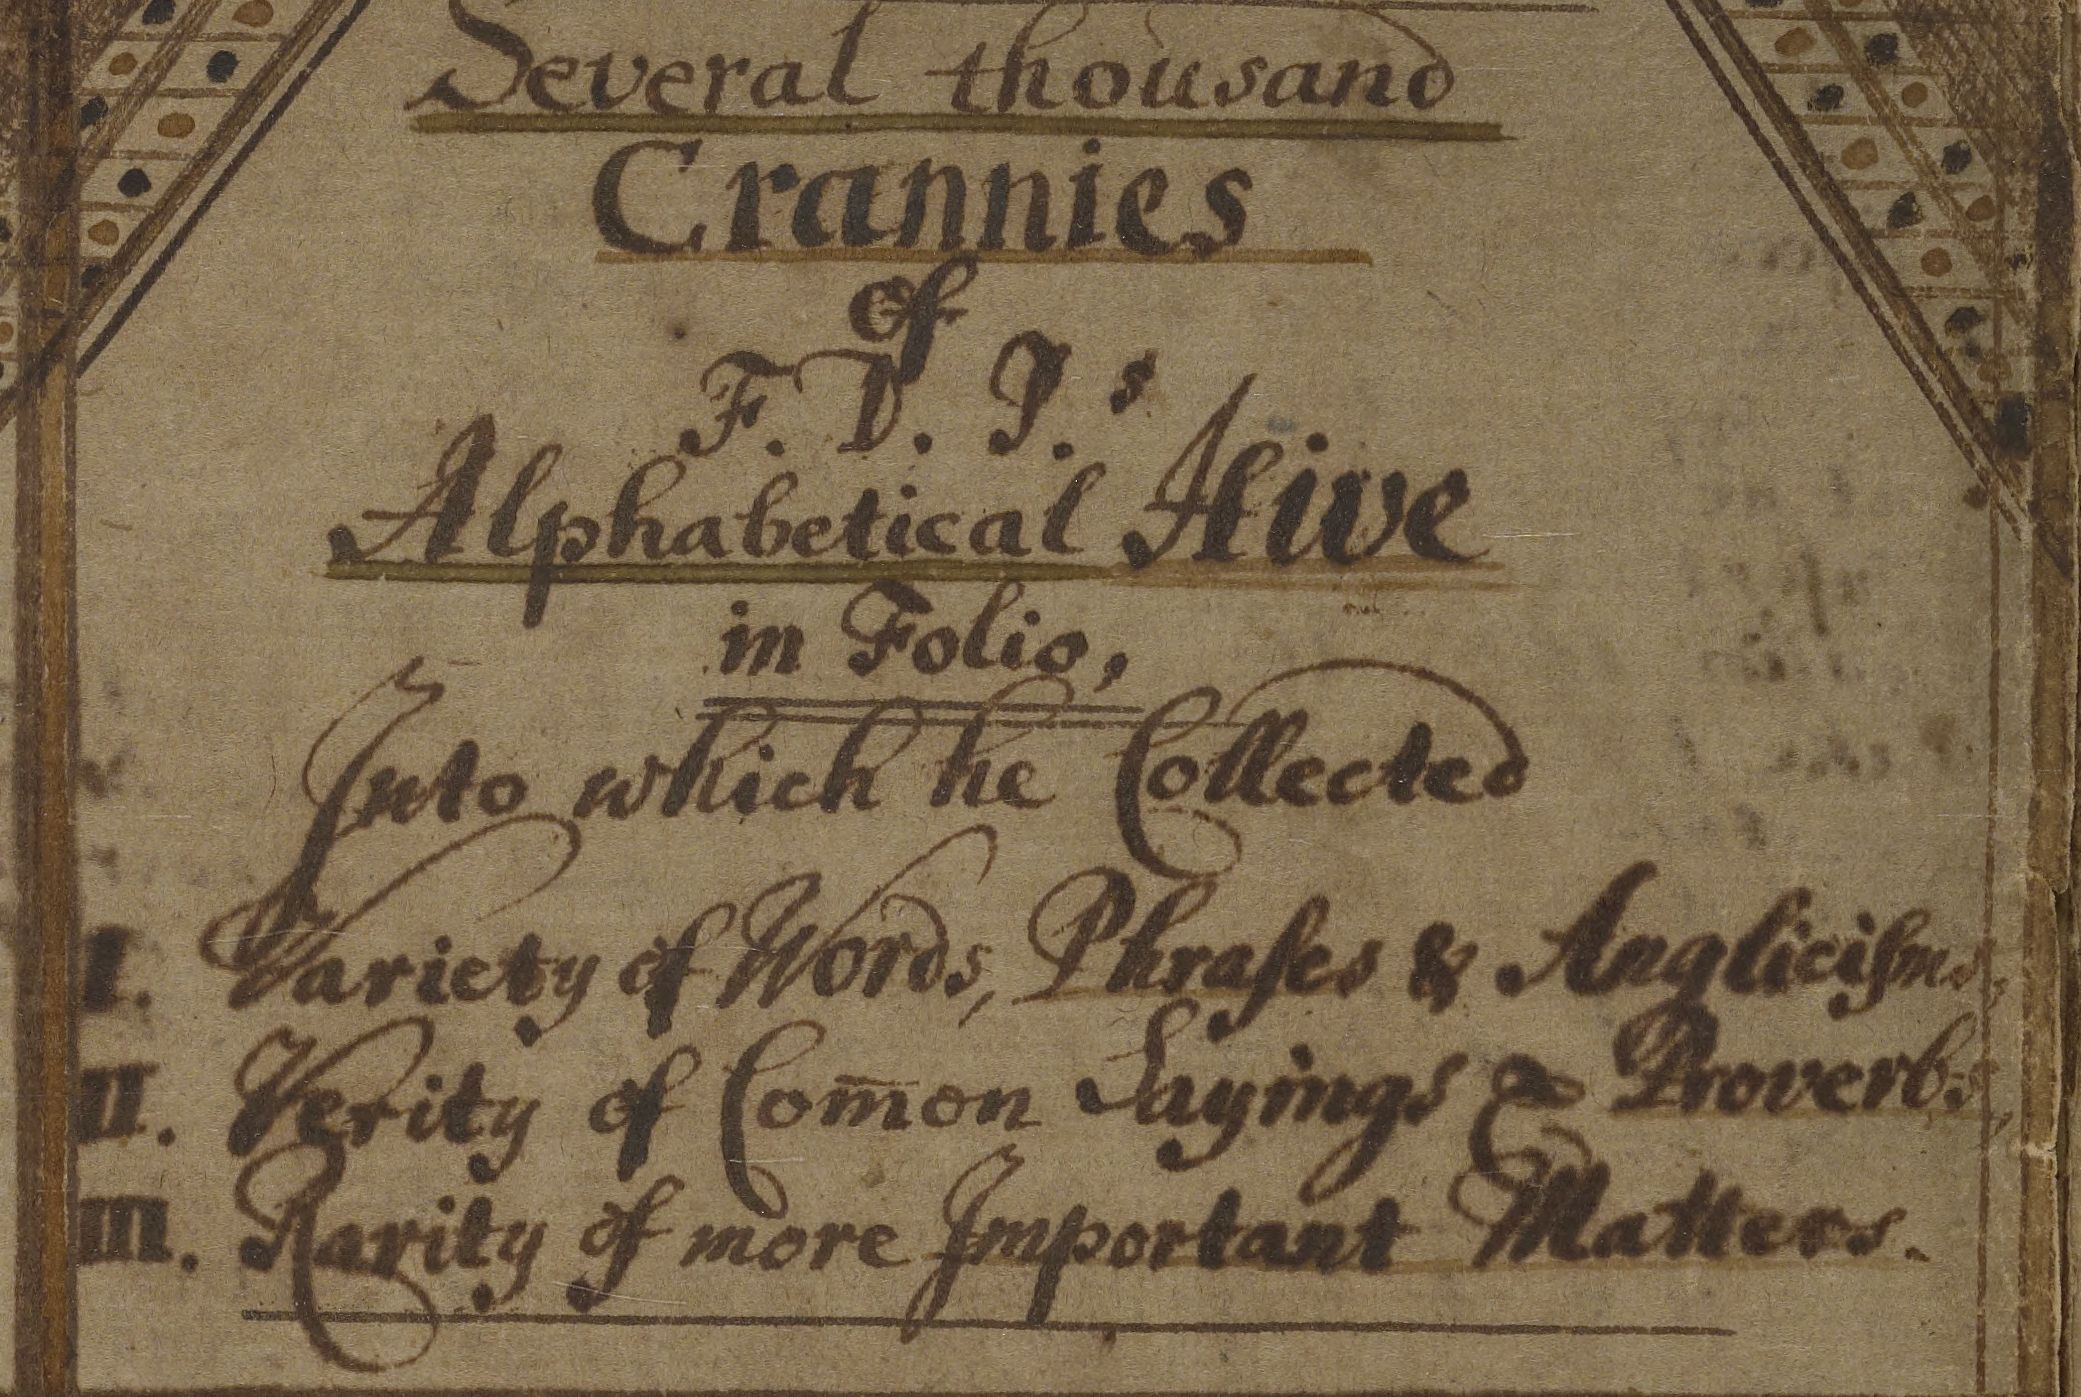 Several thousand
Crannies
of
F. D. P.s
Alphabetical Hive
in Folio,
Into which he Collected
I. Variety of Words, Phraſes & Angliciſms,
II. Verity of Com̄on Sayings & Proverbs,
III. Rarity of more Important Matters.